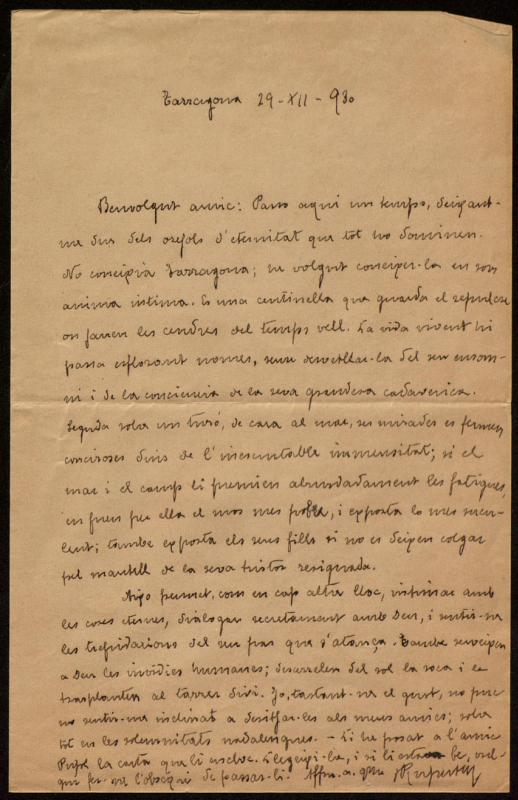 Tarragona 29-XII-930
Benvolgut amic: Passo aquí un temps, deixant-
me dur dels orejols d'eternitat que tot ho dominen.
No coneixia Tarragona; he volgut coneixer-la en son
anima intima. Es una centinella que guarda el sepulcre
on jauen les cendres del temps vell. La vida vivent hi
passa esflorant nomes, sense desvetllar-la del seu ensom-
ni i de la conciencia de la seva grandesa cadaverica.
Seguda sobre un turó, de cara al mar, ses mirades es
dins de l'inescrutable immensitat; si el
mar i el camp li premien abundadament les fatigues,
en frueix per ella el mos mes pobre, i exporta lo mes sucu-
lent; tambe exporta els seus fills si no es deixen colgar
pel mantell de la seva tristor resignada.
Aixo permet, com en cap altre lloc, intimar amb
les coses eternes, dialogar secretament amb Deu, i sentir-ne
les trepidacions del seu pas que s'atança. Tambe
a Deu les invidies humanes; desarrelen del sol la soca i la
trasplanten al terrer diví. Jo, tastant-ne el gust, no puc
no sentir-me inclinat a desitjar-les als meus amics; sobre
tot en les solemnitats nadalenques. - Li he posat a l'amic
Pujol la carta que li incloc. Llegeixi-la, i si li estè be, vul-
gui fer-me l'obsequi de passar-li. Affm. a. q.